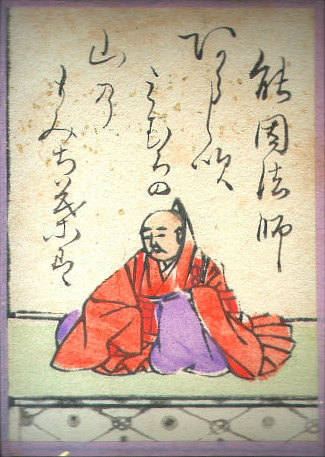 能因法師
あらし吹
みむろの
山の
もみち葉は